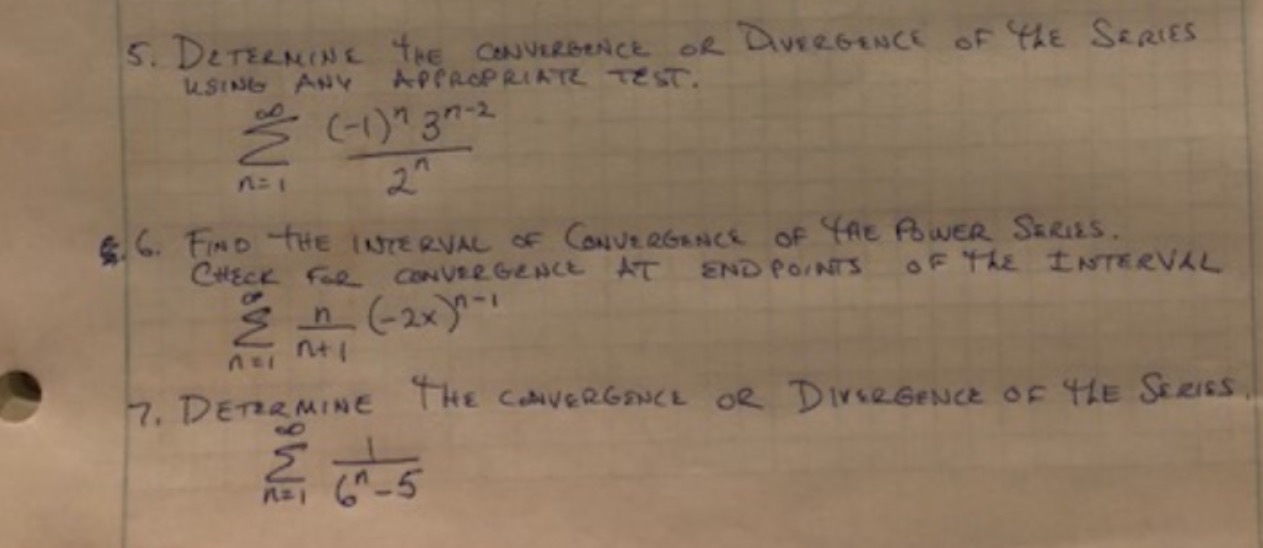 5. DETERMINE THE CONVERGENCE OR DIVERGENCE OF THE SERIES
USING ANY APPROPRIATE TEST.
∞
Σ (-1)^n 3^{n-2}
n=1 2^n
6. FIND THE INTERVAL OF CONVERGENCE OF THE POWER SERIES.
CHECK FOR CONVERGENCE AT ENDPOINTS OF THE INTERVAL
∞
Σ n (-2x)^{n-1}
n=1 n+1
7. DETERMINE THE CONVERGENCE OR DIVERGENCE OF THE SERIES.
∞
Σ 1
n=1 6^n-5